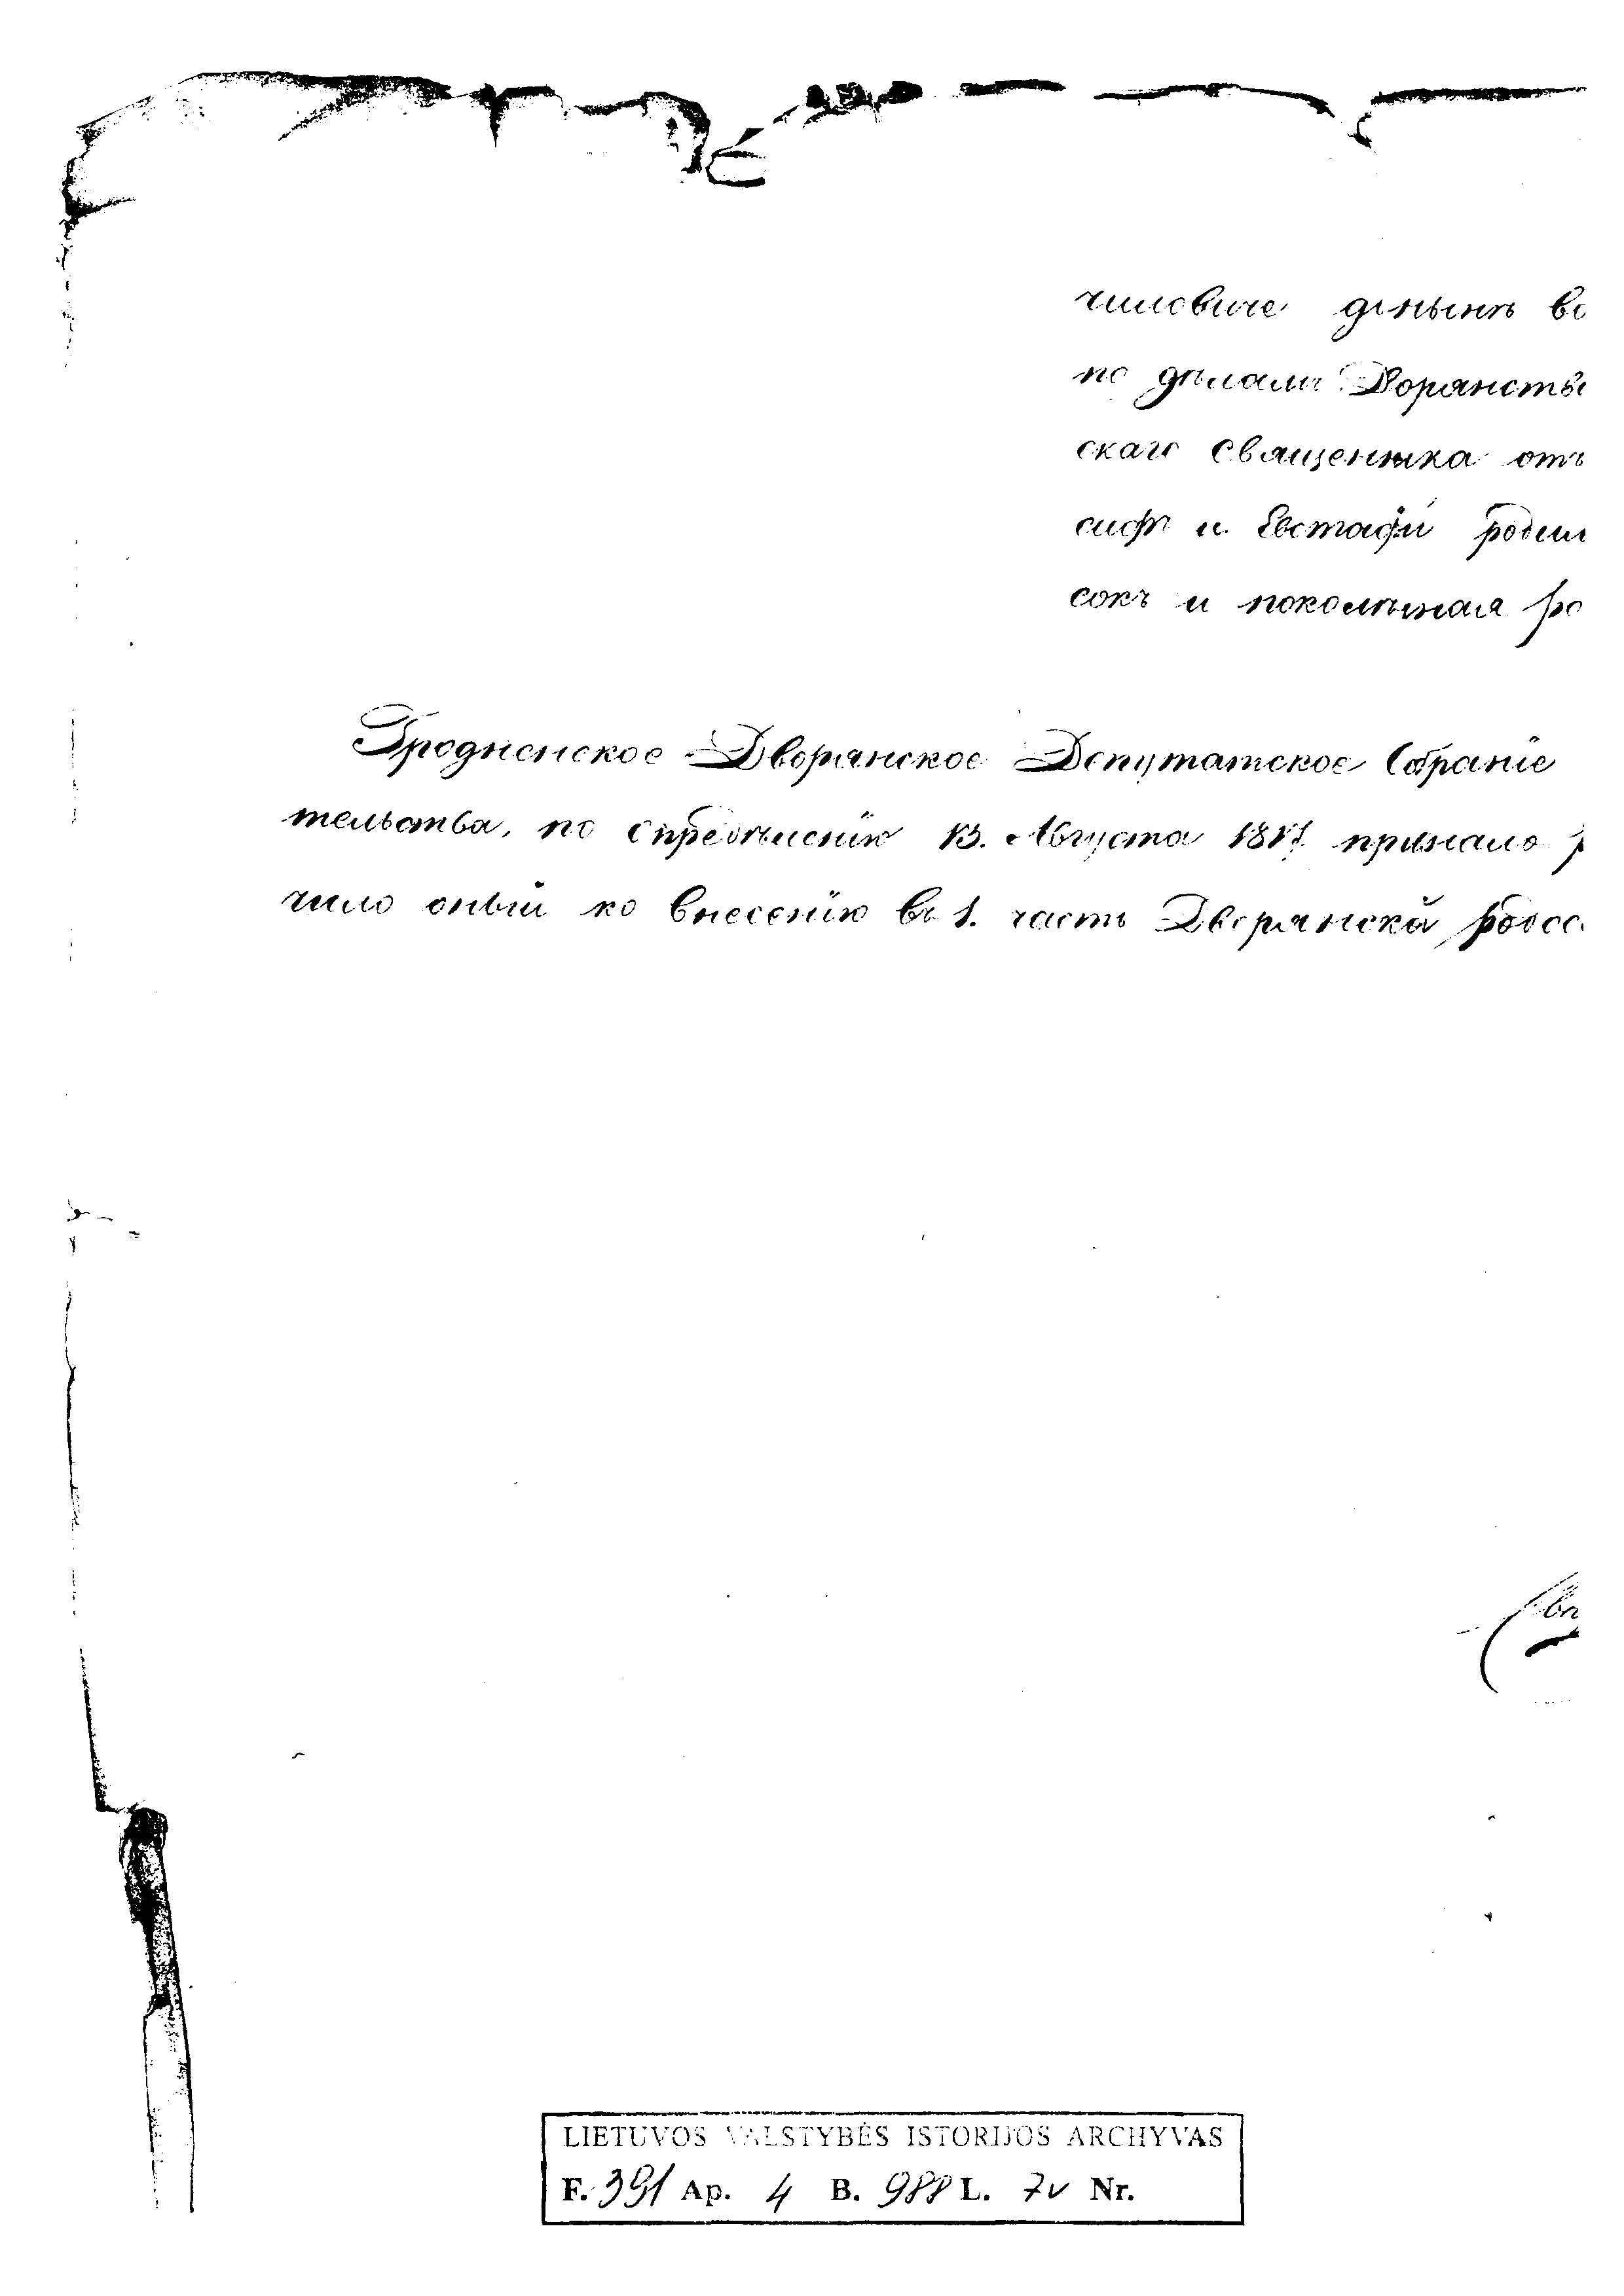 чиловиче донынѣ во
по дѣламъ Дворянств
скаго Священника отъ
сифъ и Евстафій роди
сокъ и поколѣнная ро
Гродненское Дворянское Депутатское Собраніе
тельства, по опредѣленію 13. Августа признало р
чило оный ко внесенію въ 1. часть Дворянской родос
LIETUVOS VALSTYBĖS ISTORIJOS ARCHYVAS
F. 391 Ap. 4 B. 988 L. 7v Nr.